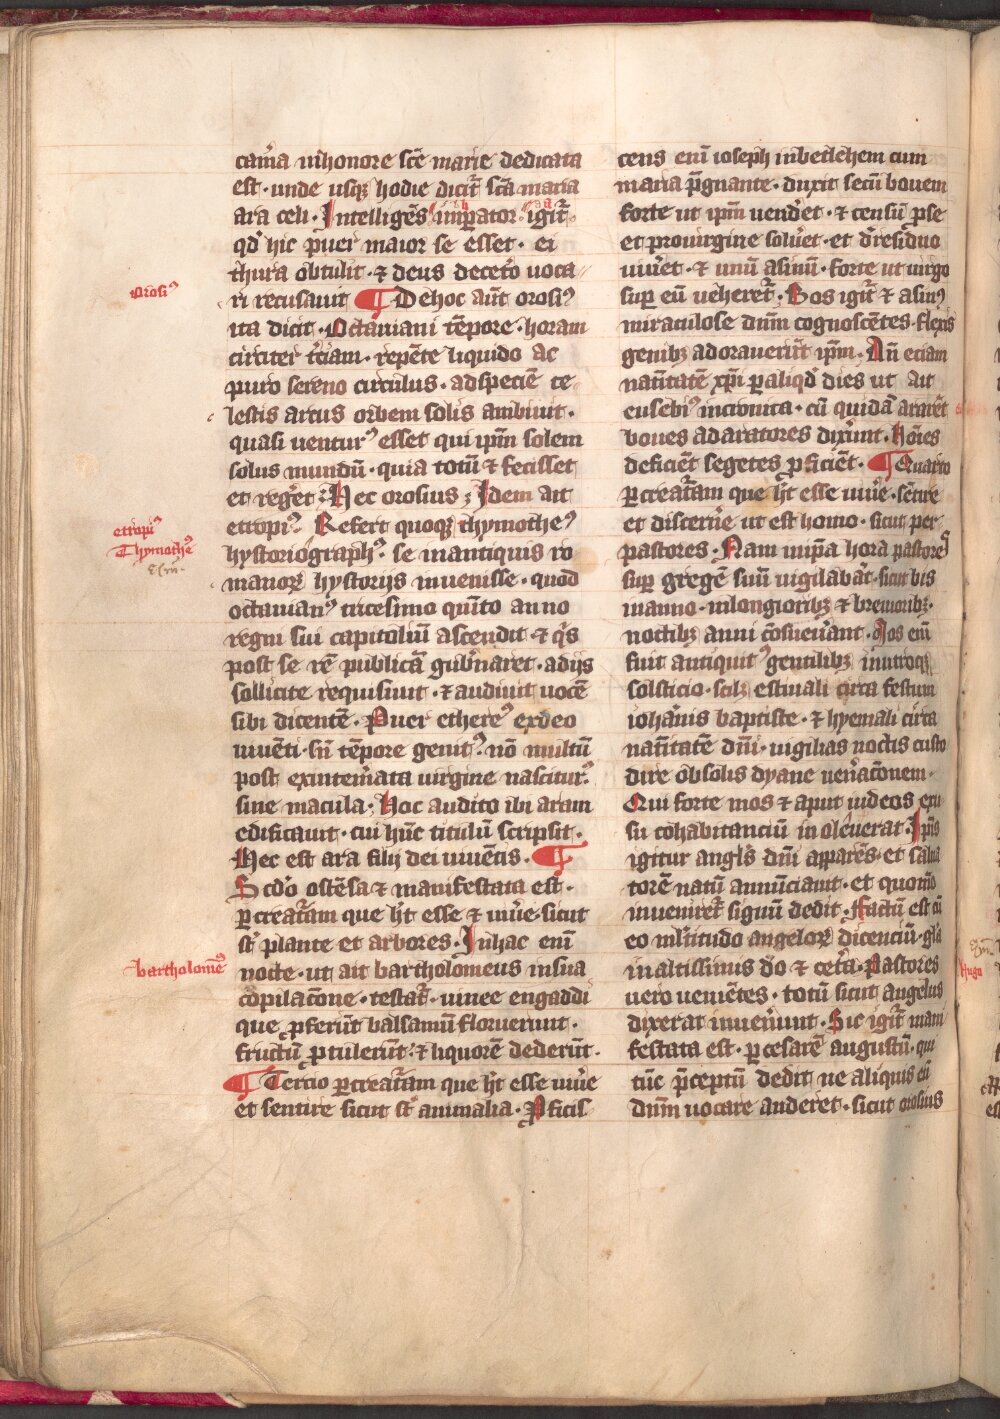 cam̅a inhonore sc̅e marie dedicata
est · unde usqꝫ hodie dicit᷑ sc̅a maria
ara celi · Intelligēs imꝑator igit᷑
qđ hic puer maior se esset · ei
thura obtulit · ⁊ deus decet̉o uoca
ri recusauit ¶ Dehoc aūt orosiꝰ
ita dicit · Octauiani tēpore · horam
circiter t̉ciam · repēte liquido ac
puro sereno circulus · adspeciē ce
lestis arcus orbem solis ambiuit ·
quasi ventur᷒ esset qui ip̅m solem
solus mundū · quia totū ⁊ fecisset
et reg̉et : Hec orosius ; Idem ait
etropiꝰ · Refert quoqꝫ thymotheꝰ
hystoriographꝰ · se inantiquis ro
manoꝝ hystorijs inuenisse · quod
octauianꝰ tricesimo quīto anno
regni sui capitoliū ascendit · ⁊ q̉s
post se rē publicā gub̉naret · adijs
sollicite requisiuit · ⁊ audiuit uocē
sibi dicentē · Puer ethereꝰ exdeo
uiuēti · sn̅ tēpore genitꝰ · nō multū
post exintem̉ata uirgine nasciturꝰ ·
sine macula · Hoc audito ibi aram
edificauit · cui hūc titulū scripsit ·
Hec est ara filij dei uiuētis · ¶
Scd̉o ostēsa ⁊ manifestata est ·
ꝑcreat᷑am que h̅t esse ⁊ uiu̅e · sicut
st̅ plante et arbores · Inhac eni̅
nocte · ut ait bartholomeus insua
cōpilac̅one · testat᷑ · uinee engaddi
que ꝓferūt balsamū floruerunt ·
fructū ꝓtulerūt · ⁊ liquorē dederūt ·
¶ Tercio ꝑcreat᷑am que h̅t esse uiu̅e
et sentire sicut st̅ animalia · Pficis
cens eni̅ ioseph inbethlehem cum
maria p̅gnante · duxit secū bouem
forte ut ip̅m uend̉et · ⁊ censū ꝓse
et prouirgine solu̅et · et d̉residuo
uiu̅et · ⁊ unū asinū · forte ut uirgo
suꝑ eū ueheret᷑ · Bos igit᷑ ⁊ asinꝰ
miraculose dn̅m cognoscētes · flexis
genibꝫ adorauerūt ip̅m · An̅ eciam
natiu̅tatē xp̅i ꝑaliqđ dies ut ait
eusebiꝰ incronica · cū quidā ararēt
boues adaratores dixerūt · ho̅ies
deficiēt segetes ꝓficiēt · ¶ Quarto
ꝑcreat᷑am que h̅t esse uiu̅e · sētire
et discern̅e ut est homo · sicut per
pastores · Nam inip̅a hora pastores
suꝑ gregē suū uigilabāt · sicut bis
inanno · inlongioribꝫ ⁊ breuioribꝫ ·
noctibꝫ anni cōsueu̅ant · Mos eni̅
fuit antiquitꝰ gentilibꝫ inutroqꝫ
solsticio · scilꝫ estiuali circa festum
ioha̅nis baptiste · ⁊ hyemali circa
natiu̅tatē dn̅i · uigilias noctis custo
dire obsolis dyane uen̅ac̅onem ·
Qui forte mos ⁊ aput iudeos exu
su cohabitanciū inoleuerat · Ip̅is
igitur angl̅s dn̅i appar̅es · et salua
torē natū annūciauit · et quom̅o
inueniret᷑ signū dedit · Factū est cū
eo ml̅titudo angeloꝝ dicenciū · gl̅a
inaltissimis d̅o ⁊ cet̉a · Pastores
uero ueniētes · totū sicut angelus
dixerat inuen̅unt · Sic igit᷑ mani
festata est · ꝑcesarē augustū · qui
tūc p̅ceptū dedit ne aliquis eū
dn̅m uocare auderet · sicut orosius
Orosiꝰ
etropiꝰ
Thymotheꝰ
bartholomeꝰ
hugo